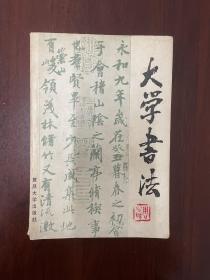 大学書法
永和九年歲在癸丑暮春之初會
于會稽山陰之蘭亭脩稧事
也羣賢畢至少長咸集此地
有崇山峻領茂林脩竹又有清流激
复旦大学出版社